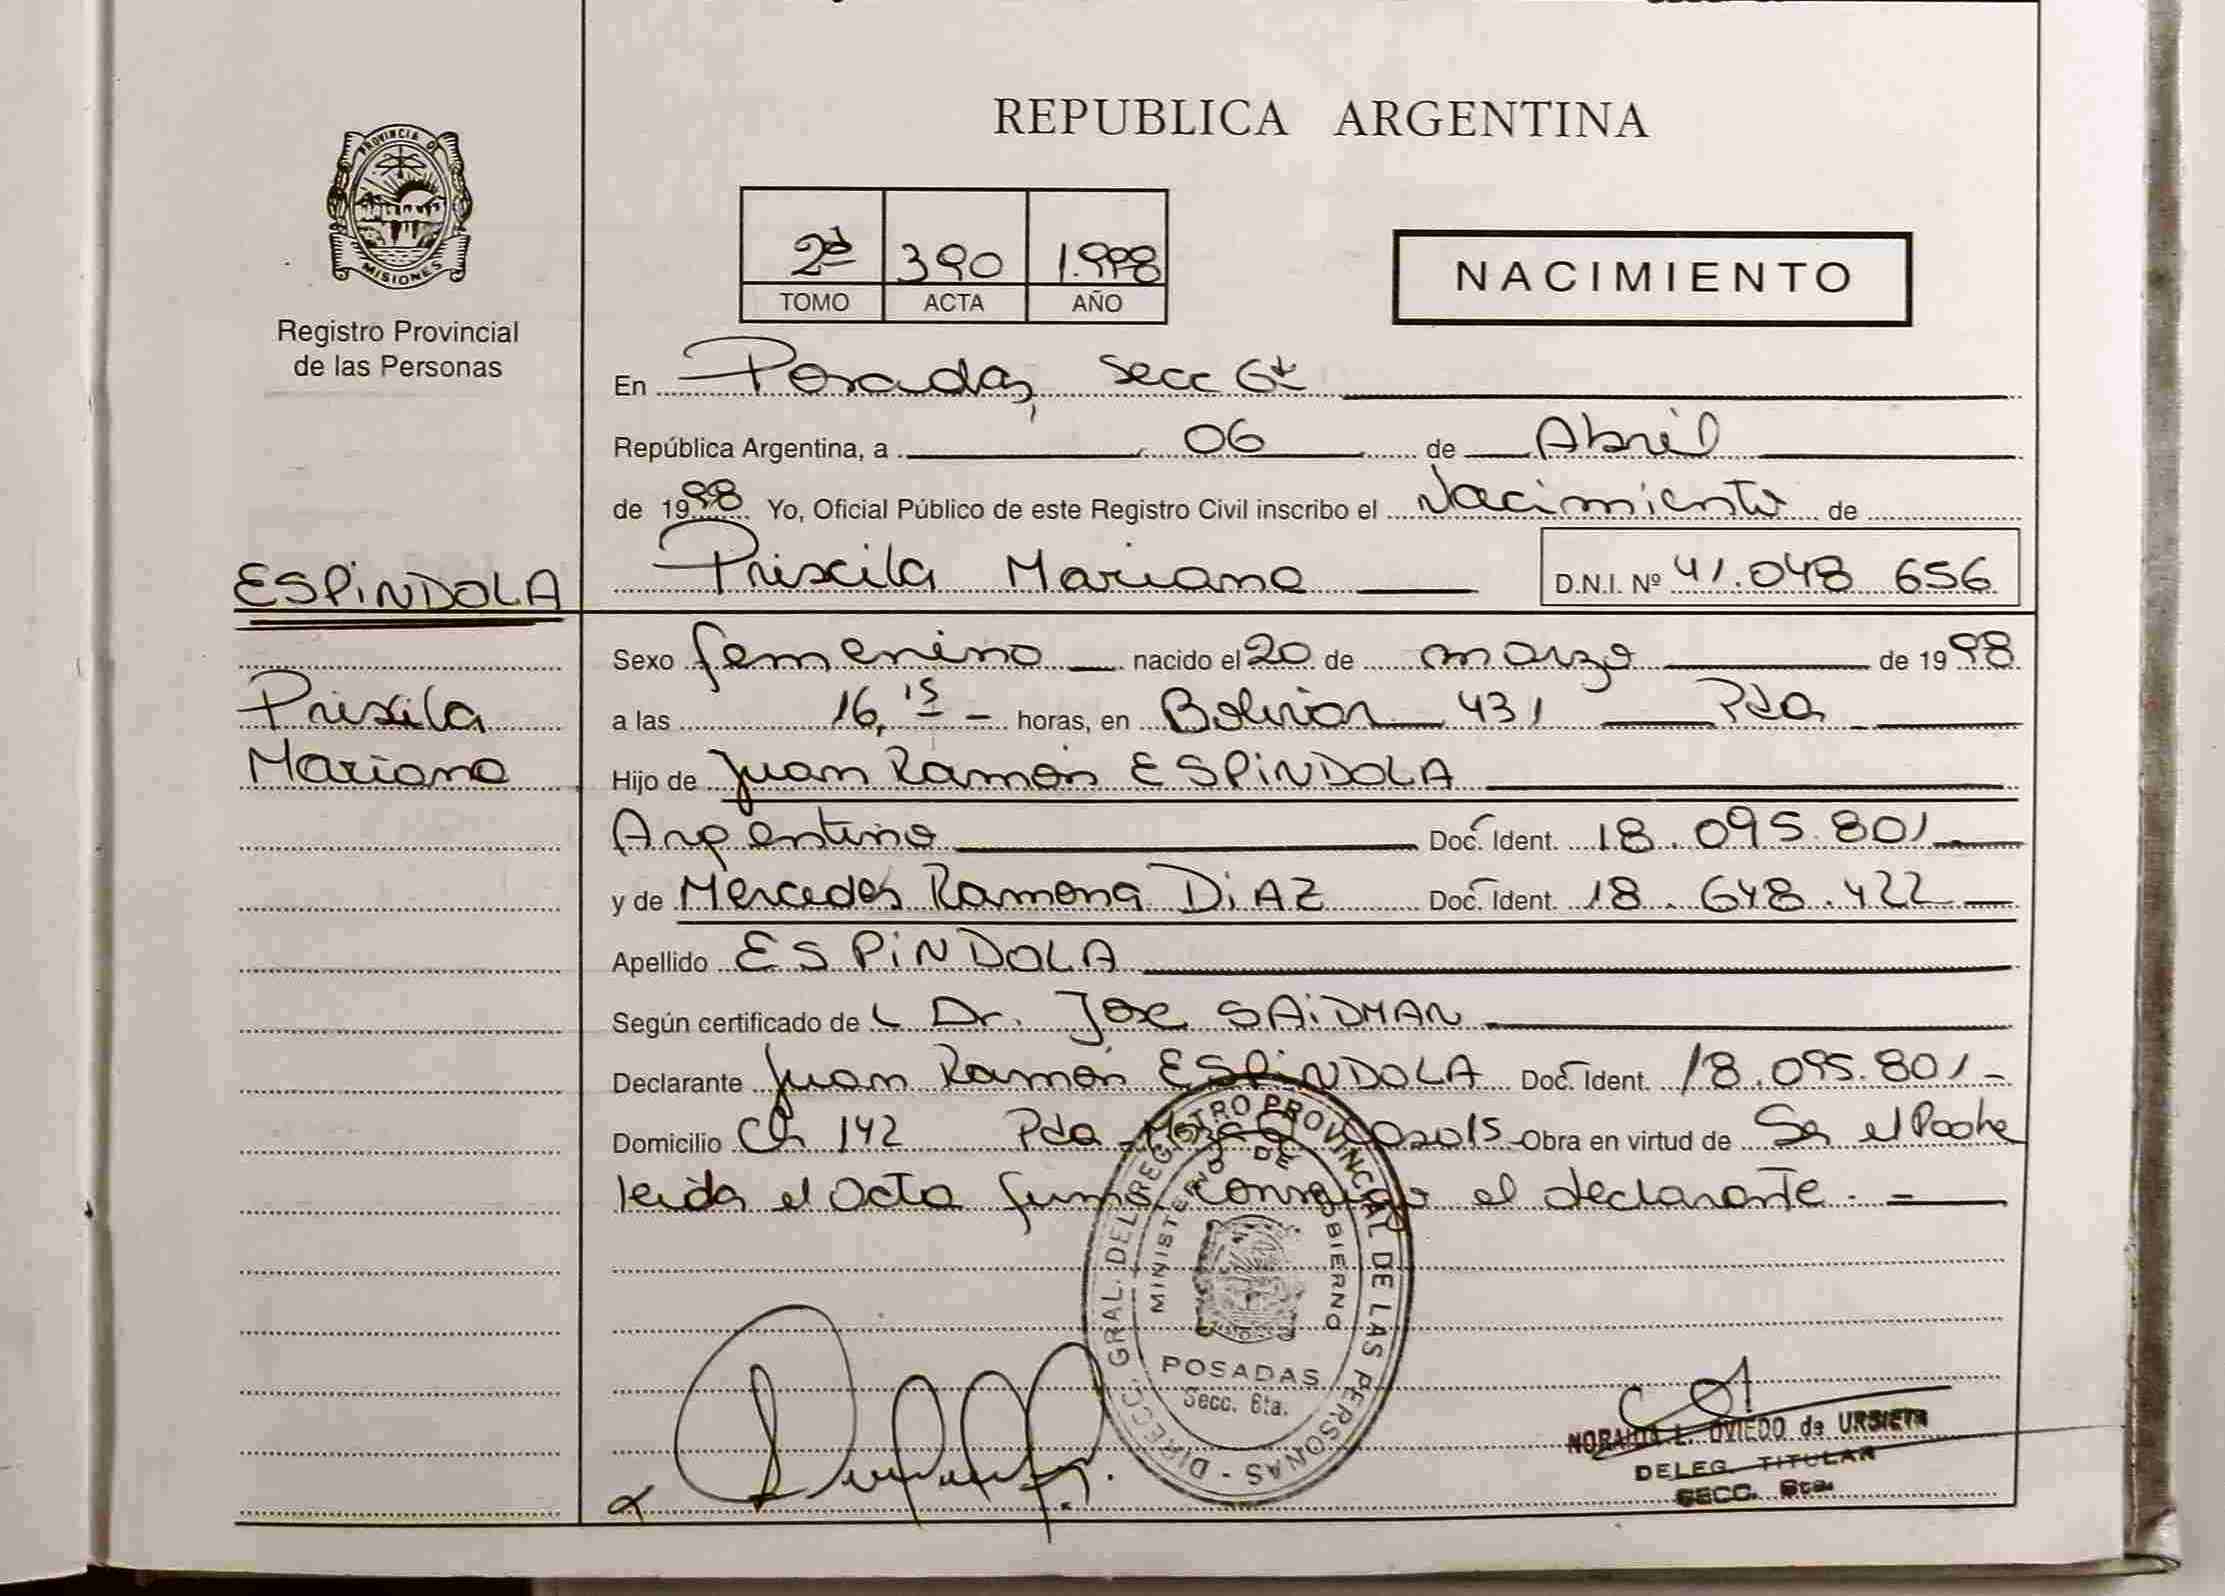 REPUBLICA ARGENTINA
PROVINCIA D
MISIONES
Registro Provincial
de las Personas
2ª 390 1.998
TOMO ACTA AÑO
NACIMIENTO
En Posadas, Secc 6ta
República Argentina, a 06 de Abril
de 1998 Yo, Oficial Público de este Registro Civil inscribo el Nacimiento de
Priscila Mariana D.N.I. Nº 41.048 656
ESPiNDOLA
Priscila
Mariana
Sexo femenino nacido el 20 de marzo de 1998
a las 16,15 - horas, en Bolivar 431 Pda
Hijo de Juan Ramón ESPiNDOLA
Argentino Doc. Ident. 18.095.801
y de Mercedes Ramona DiAZ Doc. Ident. 18.648.422
Apellido ESPiNDOLA
Según certificado de Dr. Jose SAiDMAN
Declarante Juan Ramón ESPiNDOLA Doc. Ident. 18.095.801-
Domicilio Ch 142 Pda Obra en virtud de Ser el Padre
leida el acta firma conmigo el declarante.
DIRECC. GRAL. DEL REGISTRO PROVINCIAL DE LAS PERSONAS -
MINISTERIO DE GOBIERNO
POSADAS
Secc. 6ta.
L. OVIEDO de URBIETA
DELEG. TITULAR
SECC. 6ta.